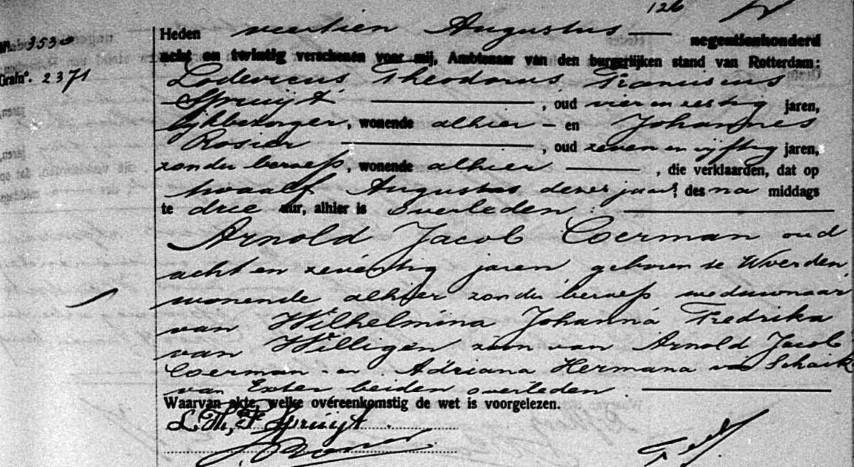 126
Heden veertien Augustus negentienhonderd
353
acht en twintig verschenen voor mij, Ambtenaar van den burgerlijken stand van Rotterdam:
2371
Lodevicus Theodorus Franciscus
Spruijt, oud vier en zestig jaren,
lijkbezorger, wonende alhier - en Johannes
Rosier, oud zeven en vijftig jaren,
zonder beroep, wonende alhier, die verklaarden, dat op
twaalf Augustus dezer jaar, des na middags
te drie uur, alhier is overleden:
Arnold Jacob Coerman oud
acht en zeventig jaren, geboren te Woerden,
wonende alhier zonder beroep weduwnaar
van Wilhelmina Johanna Fredrika
van Willigen zoon van Arnold Jacob
Coerman - en Adriana Hermana van Schaik
van Exter beiden overleden.
Waarvan akte, welke overeenkomstig de wet is voorgelezen.
L. Th. F. Spruijt